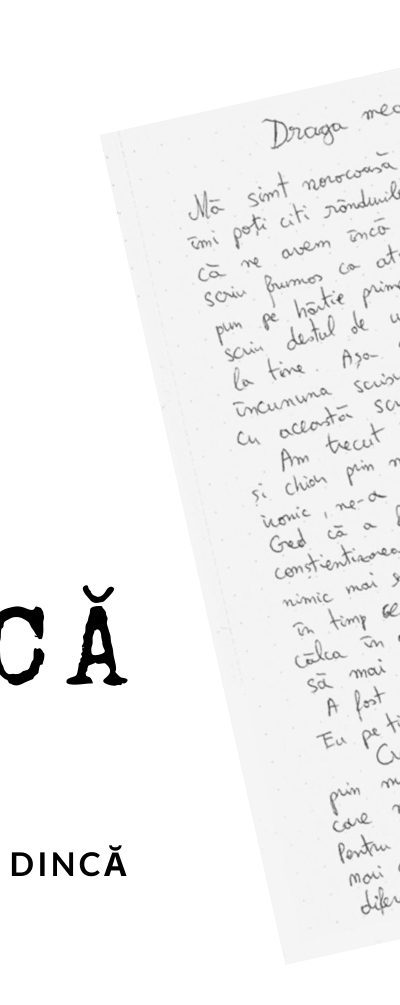 Draga mea
Mă simt norocoasă
îmi poți citi rândurile
că ne avem încă
scriu frumos ca
pun pe hârtie
scriu destul de
la tine. Așa
încununa
cu această
Am trecut
și chiar prin
ironic, ne-a
Cred că a
conștientizarea
nimic mai
în timp ce
călca în
să mai
A fost
Eu pe
prin
care
Pentru
mai
CĂ
DINCĂ